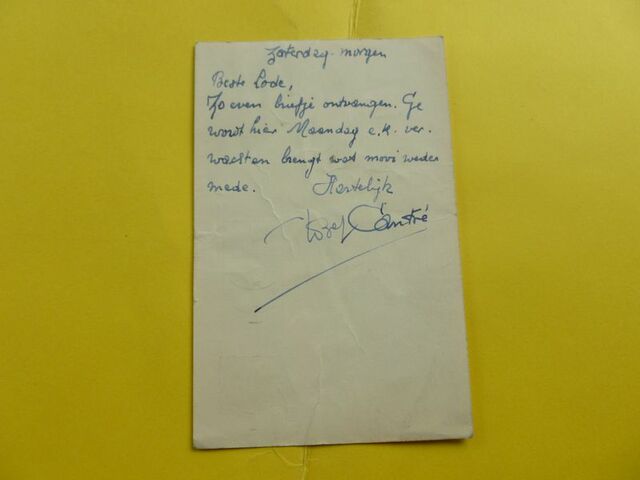 Zaterdag - morgen
Beste Lode,
Zo even briefje ontvangen. Ge
wordt hier Maandag e.k. ver.
wacht en brengt wat mooi weder
mede. Hartelijk
Jozef Cantré